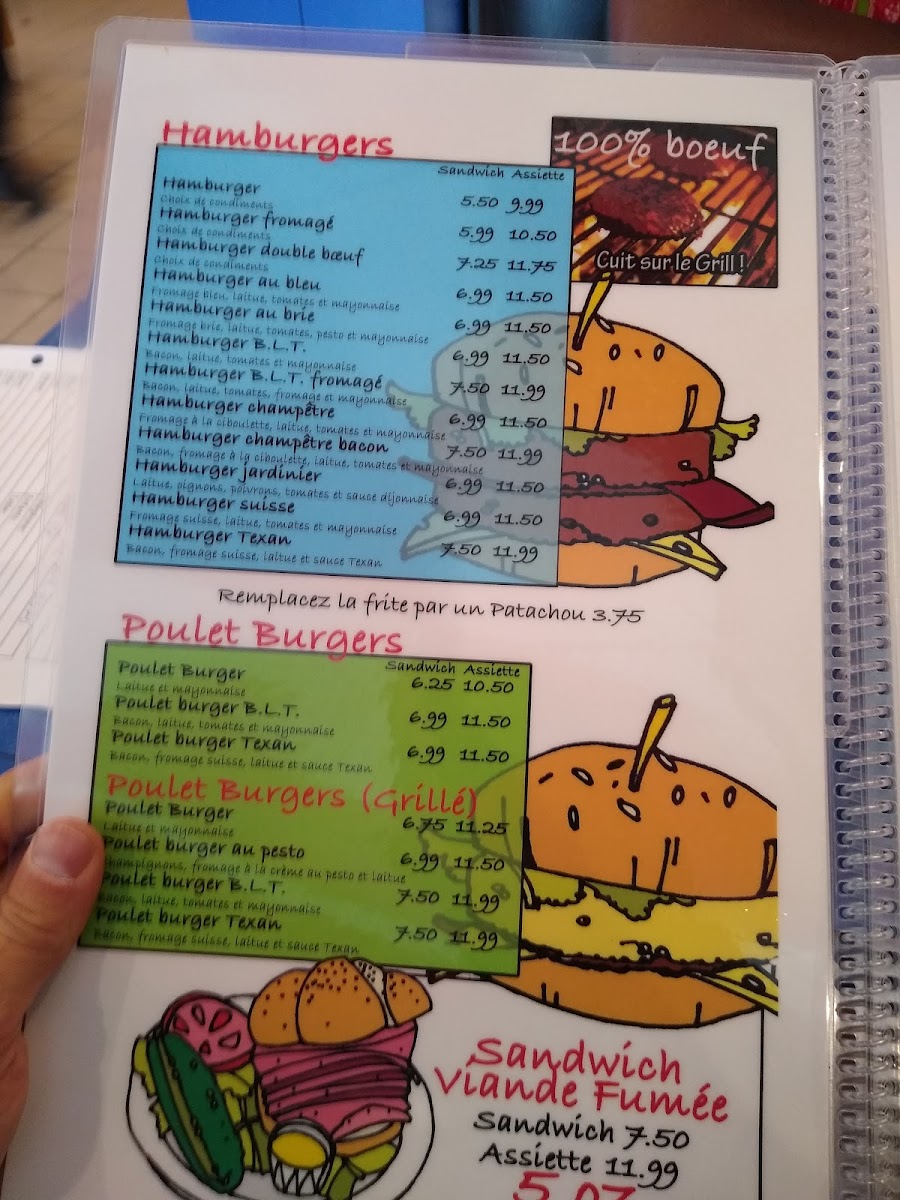 Hamburgers
100% boeuf
Cuit sur le Grill !
Sandwich Assiette
Hamburger 5.50 9.99
Choix de condiments
Hamburger fromagé 5.99 10.50
Choix de condiments
Hamburger double bœuf 7.25 11.75
Choix de condiments
Hamburger au bleu 6.99 11.50
Fromage bleu, laitue, tomates et mayonnaise
Hamburger au brie 6.99 11.50
Fromage brie, laitue, tomates, pesto et mayonnaise
Hamburger B.L.T. 6.99 11.50
Bacon, laitue, tomates et mayonnaise
Hamburger B.L.T. fromagé 7.50 11.99
Bacon, laitue, tomates, fromage et mayonnaise
Hamburger champêtre 6.99 11.50
Fromage à la ciboulette, laitue, tomates et mayonnaise
Hamburger champêtre bacon 7.50 11.99
Bacon, fromage à la ciboulette, laitue, tomates et mayonnaise
Hamburger jardinier 6.99 11.50
Laitue, oignons, poivrons, tomates et sauce dijonnaise
Hamburger suisse 6.99 11.50
Fromage suisse, laitue, tomates et mayonnaise
Hamburger Texan 7.50 11.99
Bacon, fromage suisse, laitue et sauce Texan
Remplacez la frite par un Patachou 3.75
Poulet Burgers
Sandwich Assiette
Poulet Burger 6.25 10.50
Laitue et mayonnaise
Poulet burger B.L.T. 6.99 11.50
Bacon, laitue, tomates et mayonnaise
Poulet burger Texan 6.99 11.50
Bacon, fromage suisse, laitue et sauce Texan
Poulet Burgers (Grillé)
Poulet Burger 6.75 11.25
Laitue et mayonnaise
Poulet burger au pesto 6.99 11.50
Champignons, fromage à la crème au pesto et laitue
Poulet burger B.L.T. 7.50 11.99
Bacon, laitue, tomates et mayonnaise
Poulet burger Texan 7.50 11.99
Bacon, fromage suisse, laitue et sauce Texan
Sandwich
Viande Fumée
Sandwich 7.50
Assiette 11.99